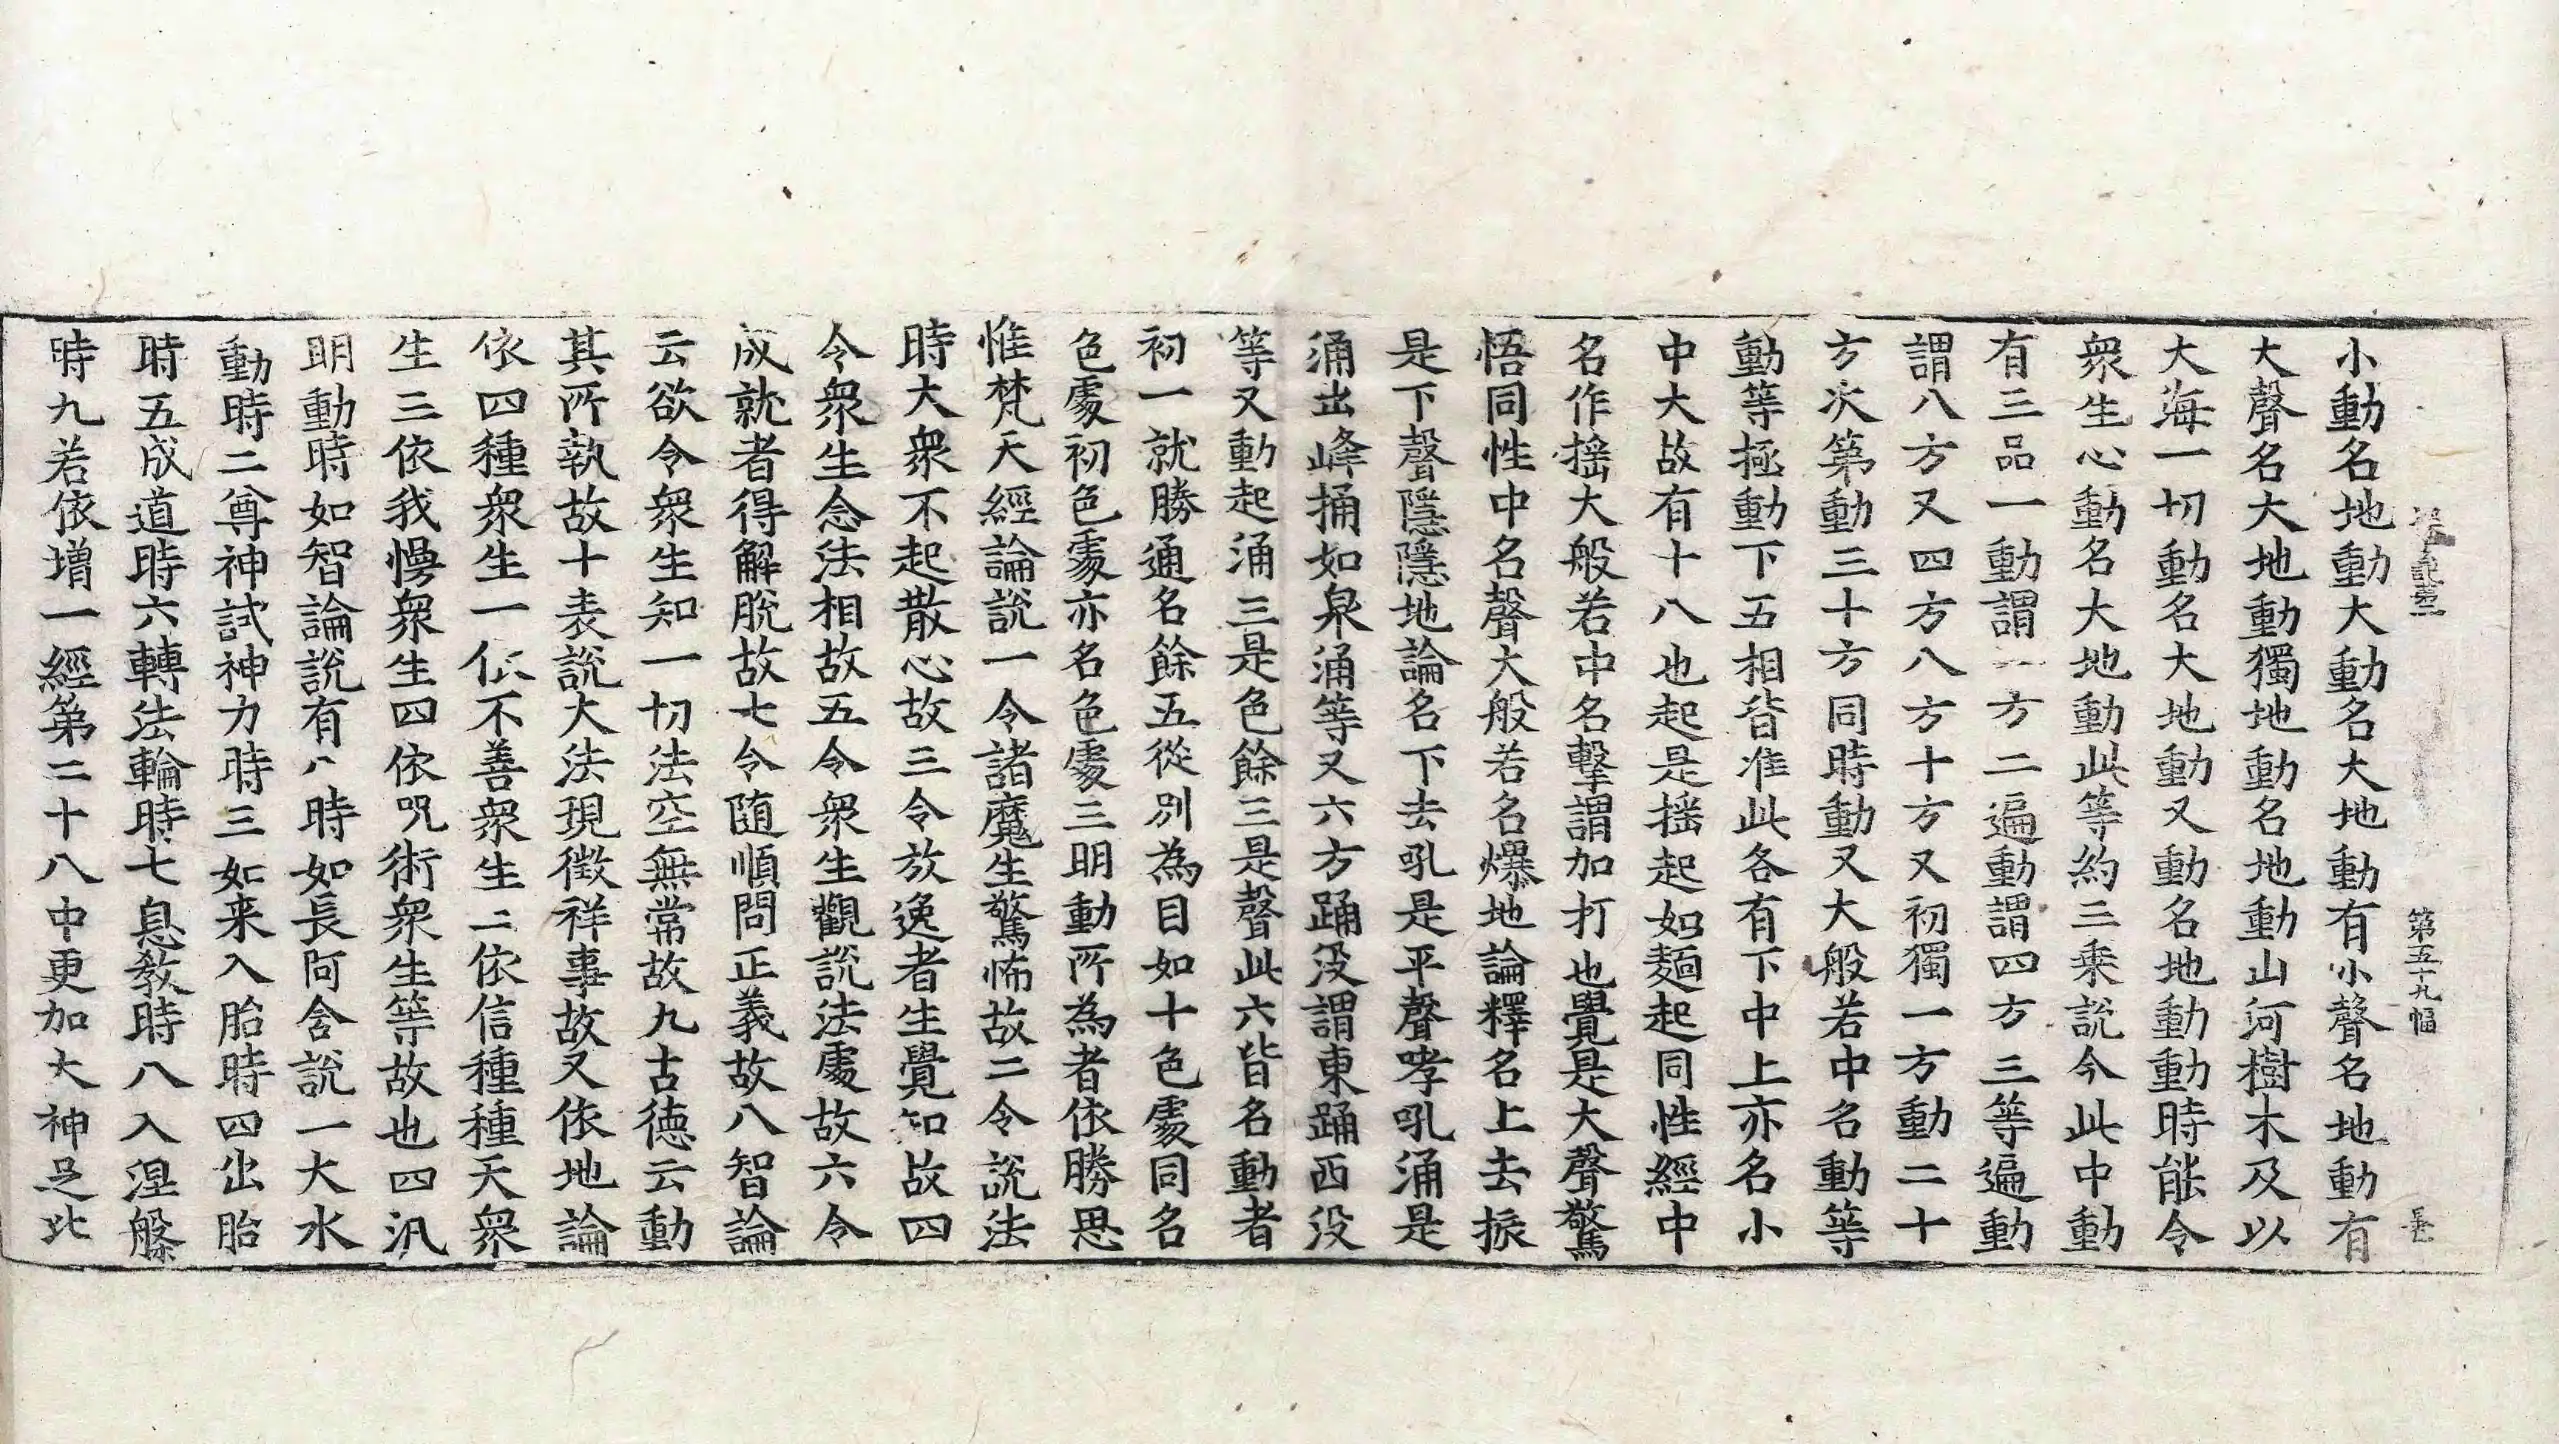 記第二 第五十九幅
小動名地動大動名大地動有小聲名地動有
大聲名大地動獨地動名地動山河樹木及以
大海一切動名大地動又動名地動動時能令
衆生心動名大地動此等約三乗說今此中動
有三品一動謂一方二遍動謂四方三等遍動
謂八方又四方八方十方又初獨一方動二十
方次第動三十方同時動又大般若中名動等
動等極動下五相皆准此各有下中上亦名小
中大故有十八也起是揺起如麵起同性經中
名作揺大般若中名擊謂加打也覺是大聲驚
悟同性中名聲大般若名爆地論釋名上去振
是下聲隱隱地論名下去吼是平聲哮吼涌是
涌出峰捅如泉涌等又六方踊没謂東踊西没
等又動起涌三是色餘三是聲此六皆名動者
初一就勝通名餘五從別為目如十色處同名
色處初色處亦名色處三明動所為者依勝思
惟梵天經論說一令諸魔生驚怖故二令說法
時大衆不起散心故三令放逸者生覺知故四
令衆生念法相故五令衆生觀說法處故六令
成就者得解脫故七令随順問正義故八智論
云欲令衆生知一切法空無常故九古徳云動
其所執故十表說大法現徵祥事故又依地論
依四種衆生一依不善衆生二依信種種天衆
生三依我慢衆生四依呪術衆生等故也四汎
明動時如智論說有八時如長阿含說一大水
動時二尊神試神力時三如来入胎時四出胎
時五成道時六轉法輪時七息教時八入涅槃
時九若依増一經第二十八中更加大神足比